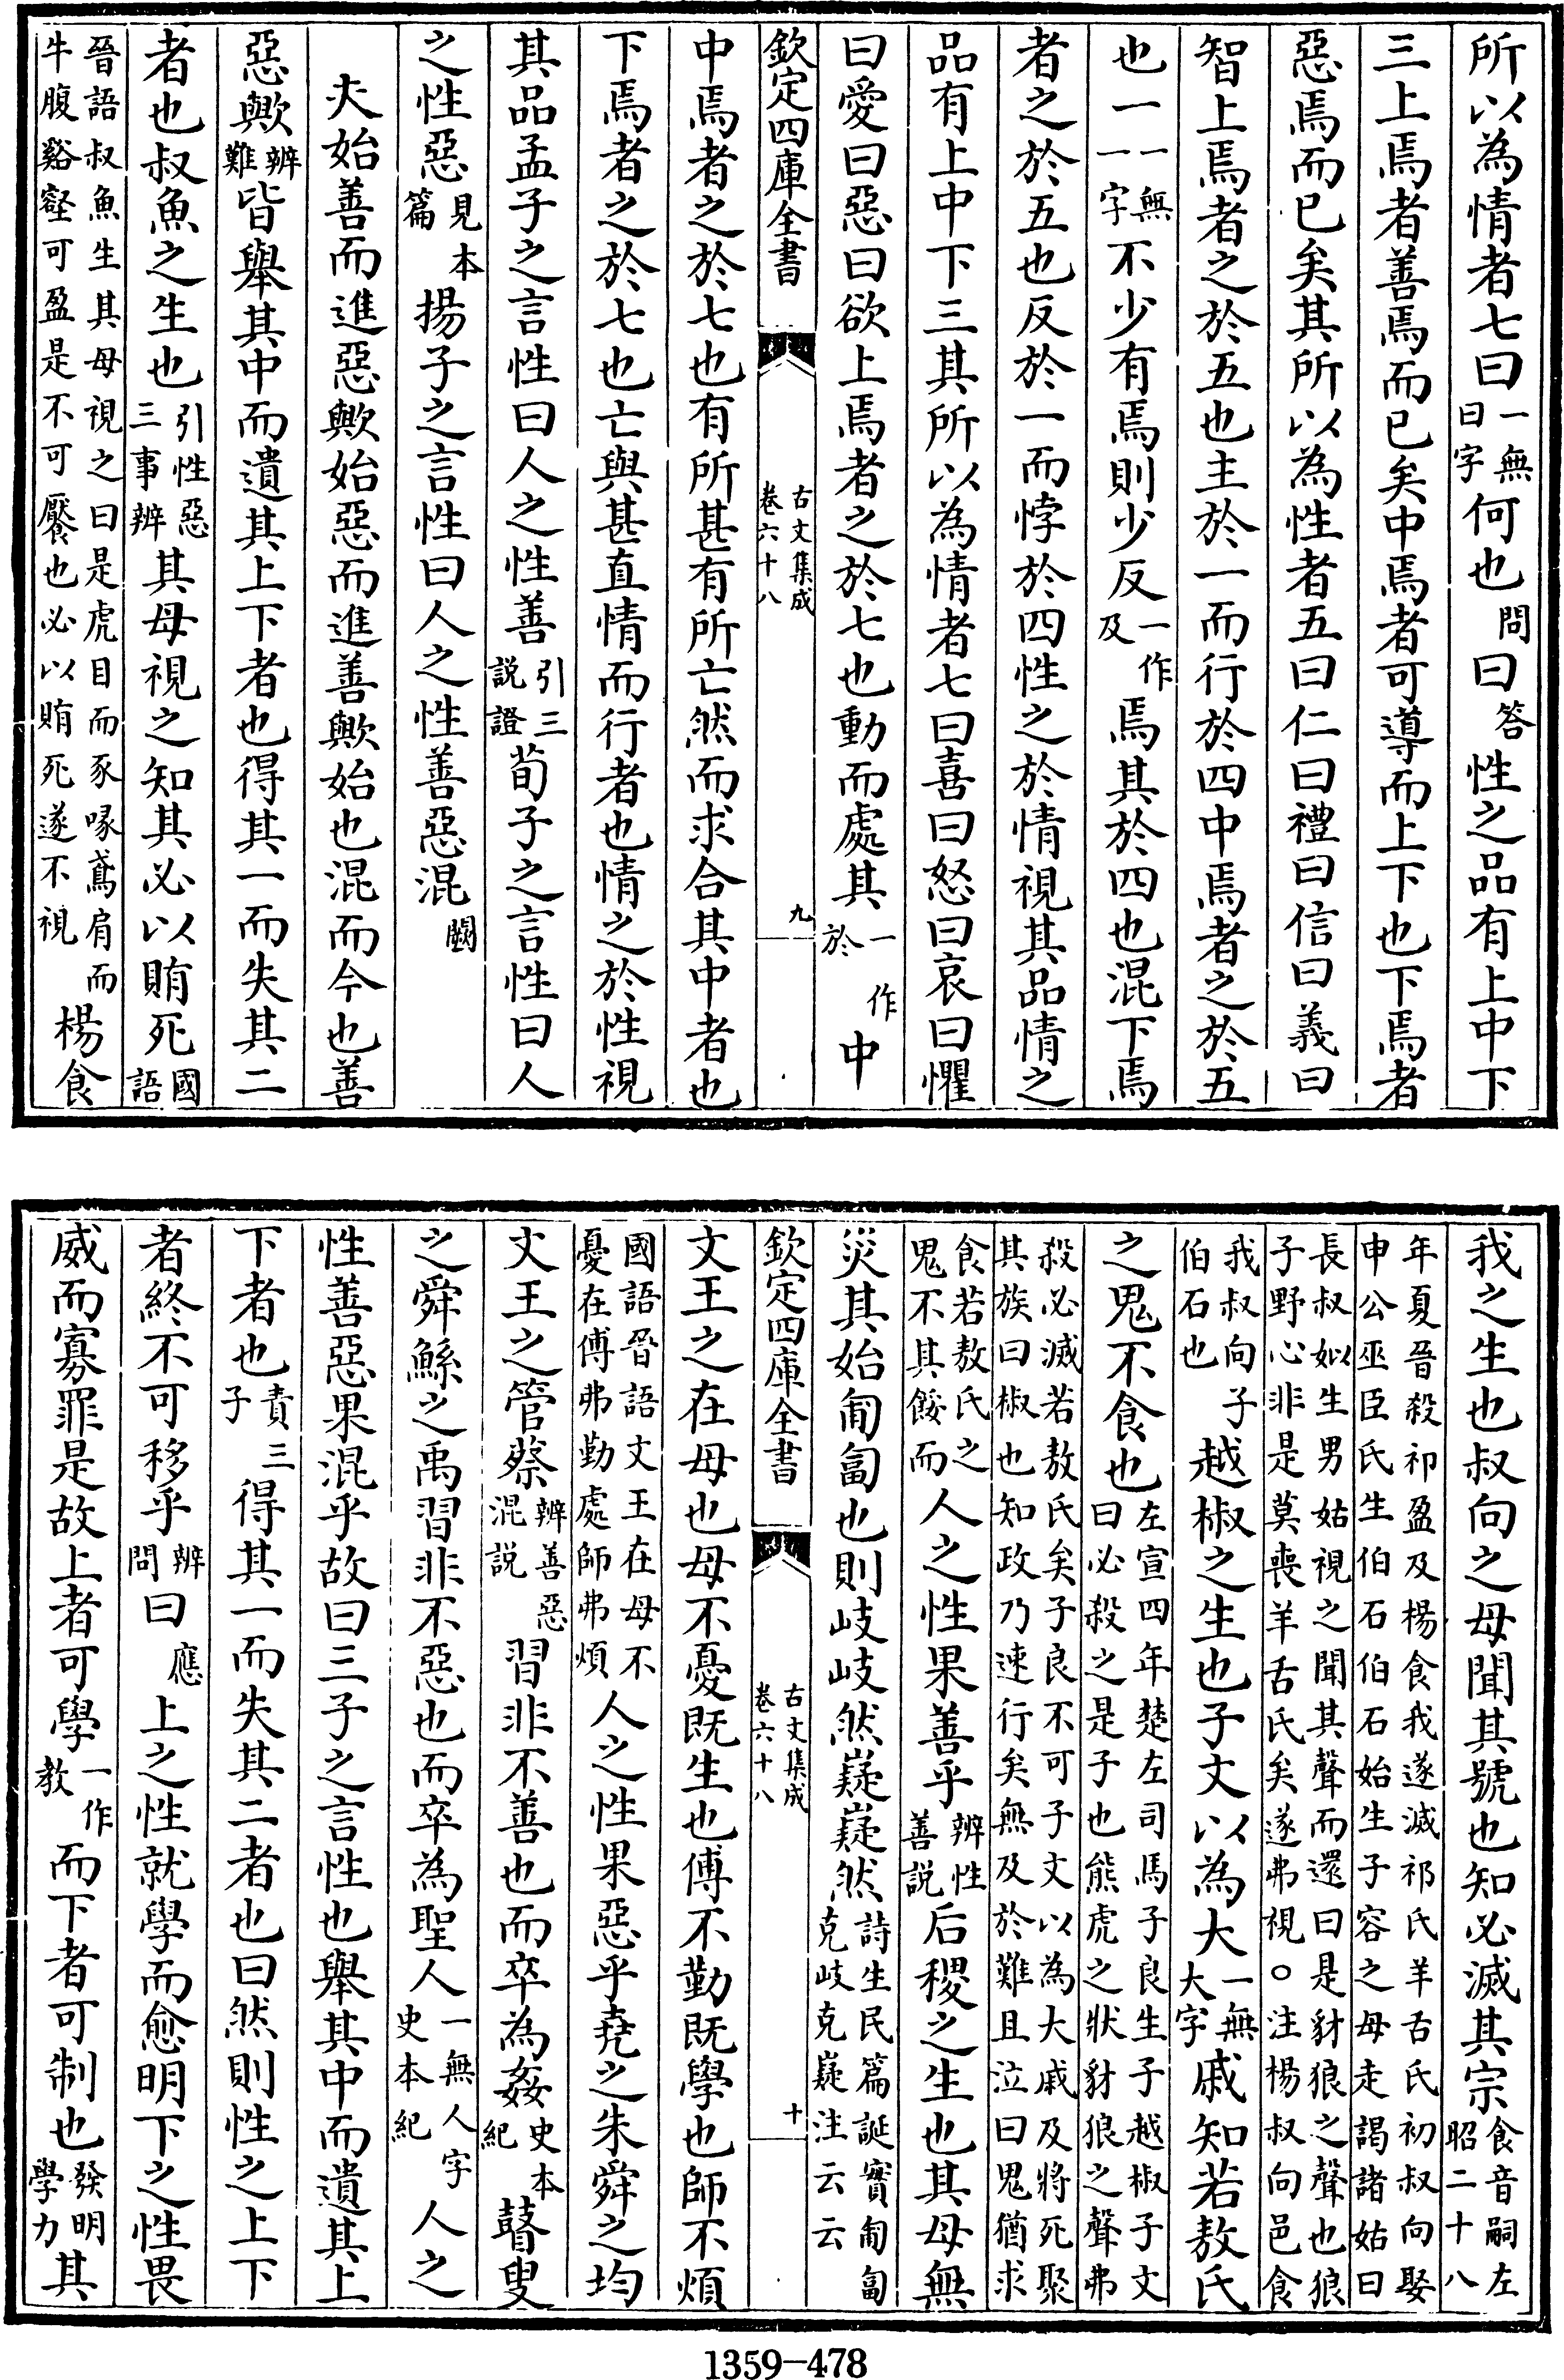 所以為情者七曰一無曰字何也問曰答性之品有上中下
三上焉者善焉而已矣中焉者可導而上下也下焉者
惡焉而已矣其所以為性者五曰仁曰禮曰信曰義曰
智上焉者之於五也主於一而行於四中焉者之於五
也一一無一字不少有焉則少反一作及焉其於四也混下焉
者之於五也反於一而悖於四性之於情視其品情之
品有上中下三其所以為情者七曰喜曰怒曰哀曰懼
曰愛曰惡曰欲上焉者之於七也動而處其一作於中
欽定四庫全書 古文集成卷六十八 九
中焉者之於七也有所甚有所亡然而求合其中者也
下焉者之於七也亡與甚直情而行者也情之於性視
其品孟子之言性曰人之性善引三說證荀子之言性曰人
之性惡見本篇揚子之言性曰人之性善惡混闕
夫始善而進惡歟始惡而進善歟始也混而今也善
惡歟辨難皆舉其中而遺其上下者也得其一而失其二
者也叔魚之生也引性惡三事辨其母視之知其必以賄死國語
晉語叔魚生其母視之曰是虎目而豕喙鳶肩而牛腹谿壑可盈是不可饜也必以賄死遂不視楊食
我之生也叔向之母聞其號也知必滅其宗食音嗣左昭二十八
年夏晉殺祁盈及楊食我遂滅祁氏羊舌氏初叔向娶申公巫臣氏生伯石伯石始生子容之母走謁諸姑曰
長叔姒生男姑視之聞其聲而還曰是豺狼之聲也狼子野心非是莫喪羊舌氏矣遂弗視○注楊叔向邑食
我叔向子伯石也越椒之生也子文以為大一無大字慼知若敖氏
之鬼不食也左宣四年楚左司馬子良生子越椒子文曰必殺之是子也熊虎之狀豺狼之聲弗
殺必滅若敖氏矣子良不可子文以為大慼及將死聚其族曰椒也知政乃速行矣無及於難且泣曰鬼猶求
食若敖氏之鬼不其餒而人之性果善乎辨性善說后稷之生也其母無
災其始匍匐也則岐岐然嶷嶷然詩生民篇誕實匍匐克岐克嶷注云云
欽定四庫全書 古文集成卷六十八 十
文王之在母也母不憂既生也傅不勤既學也師不煩
國語晉語文王在母不憂在傅弗勤處師弗煩人之性果惡乎堯之朱舜之均
文王之管蔡辨善惡混說習非不善也而卒為姦史本紀瞽叟
之舜鯀之禹習非不惡也而卒為聖人一無人字史本紀人之
性善惡果混乎故曰三子之言性也舉其中而遺其上
下者也責三子得其一而失其二者也曰然則性之上下
者終不可移乎辨問曰應上之性就學而愈明下之性畏
威而寡罪是故上者可學一作教而下者可制也發明學力其
1359-478